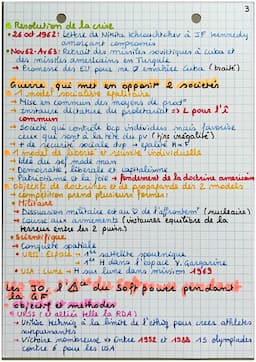 3
Resolution de la crise
• 26 oct 1962: Lettre de Nikita Khrouchtchev à JF Kennedy
amorçant compromis
• Nov 62 - Av 63: Retrait des missiles soviétiques à Cuba et
des missiles américains en Turquie
→ Promesse des EU pour ne pas envahir Cuba (traité)
Guerre qui met en opposit° 2 sociétés
1 model socialiste égalitaire
→ Mise en commun des moyens de prod°
→ Instaure dictature du prolétariat ⇒ L pour l'
commun
→ Société qui contrôle bcp individus mais favorise
ceux qui sont à la tête du pv (très inégalité)
→ + de sécurité sociale dvp → égalité H=F
1 model de liberté et réussite individuelle
→ Idée du self made man
→ Démocratie libérale et capitalisme
→ Patriotisme et la foie → fondement de la doctrine américaine
Objectif de doctrines et de propagande des 2 models
→ compétition prend plusieurs formes:
• Militaire
→ Dissuasion militaire est au de l'affrontem^t (nucléaire)
→ Course aux armements (instaure équilibre de la
terreur entre les 2 puiss.)
• Scientifique
→ Conquête spatiale
→ URSS: Espace → 1er satellite spoutnique
→ 1er H dans l'espace Y. Gargarine
→ USA: Lune → H sur lune dans mission 1969
Les JO, l'Δ du Soft power pendant
la GF
objectif et méthodes
URSS (et alliés telle la RDA)
→ Utilise technq à la limite de l'éthiq pour créer athlètes
conquérants
→ Victoire nombreuse ⇔ entre 1952 et 1988 15 olympiades
contre 6 pour les USA